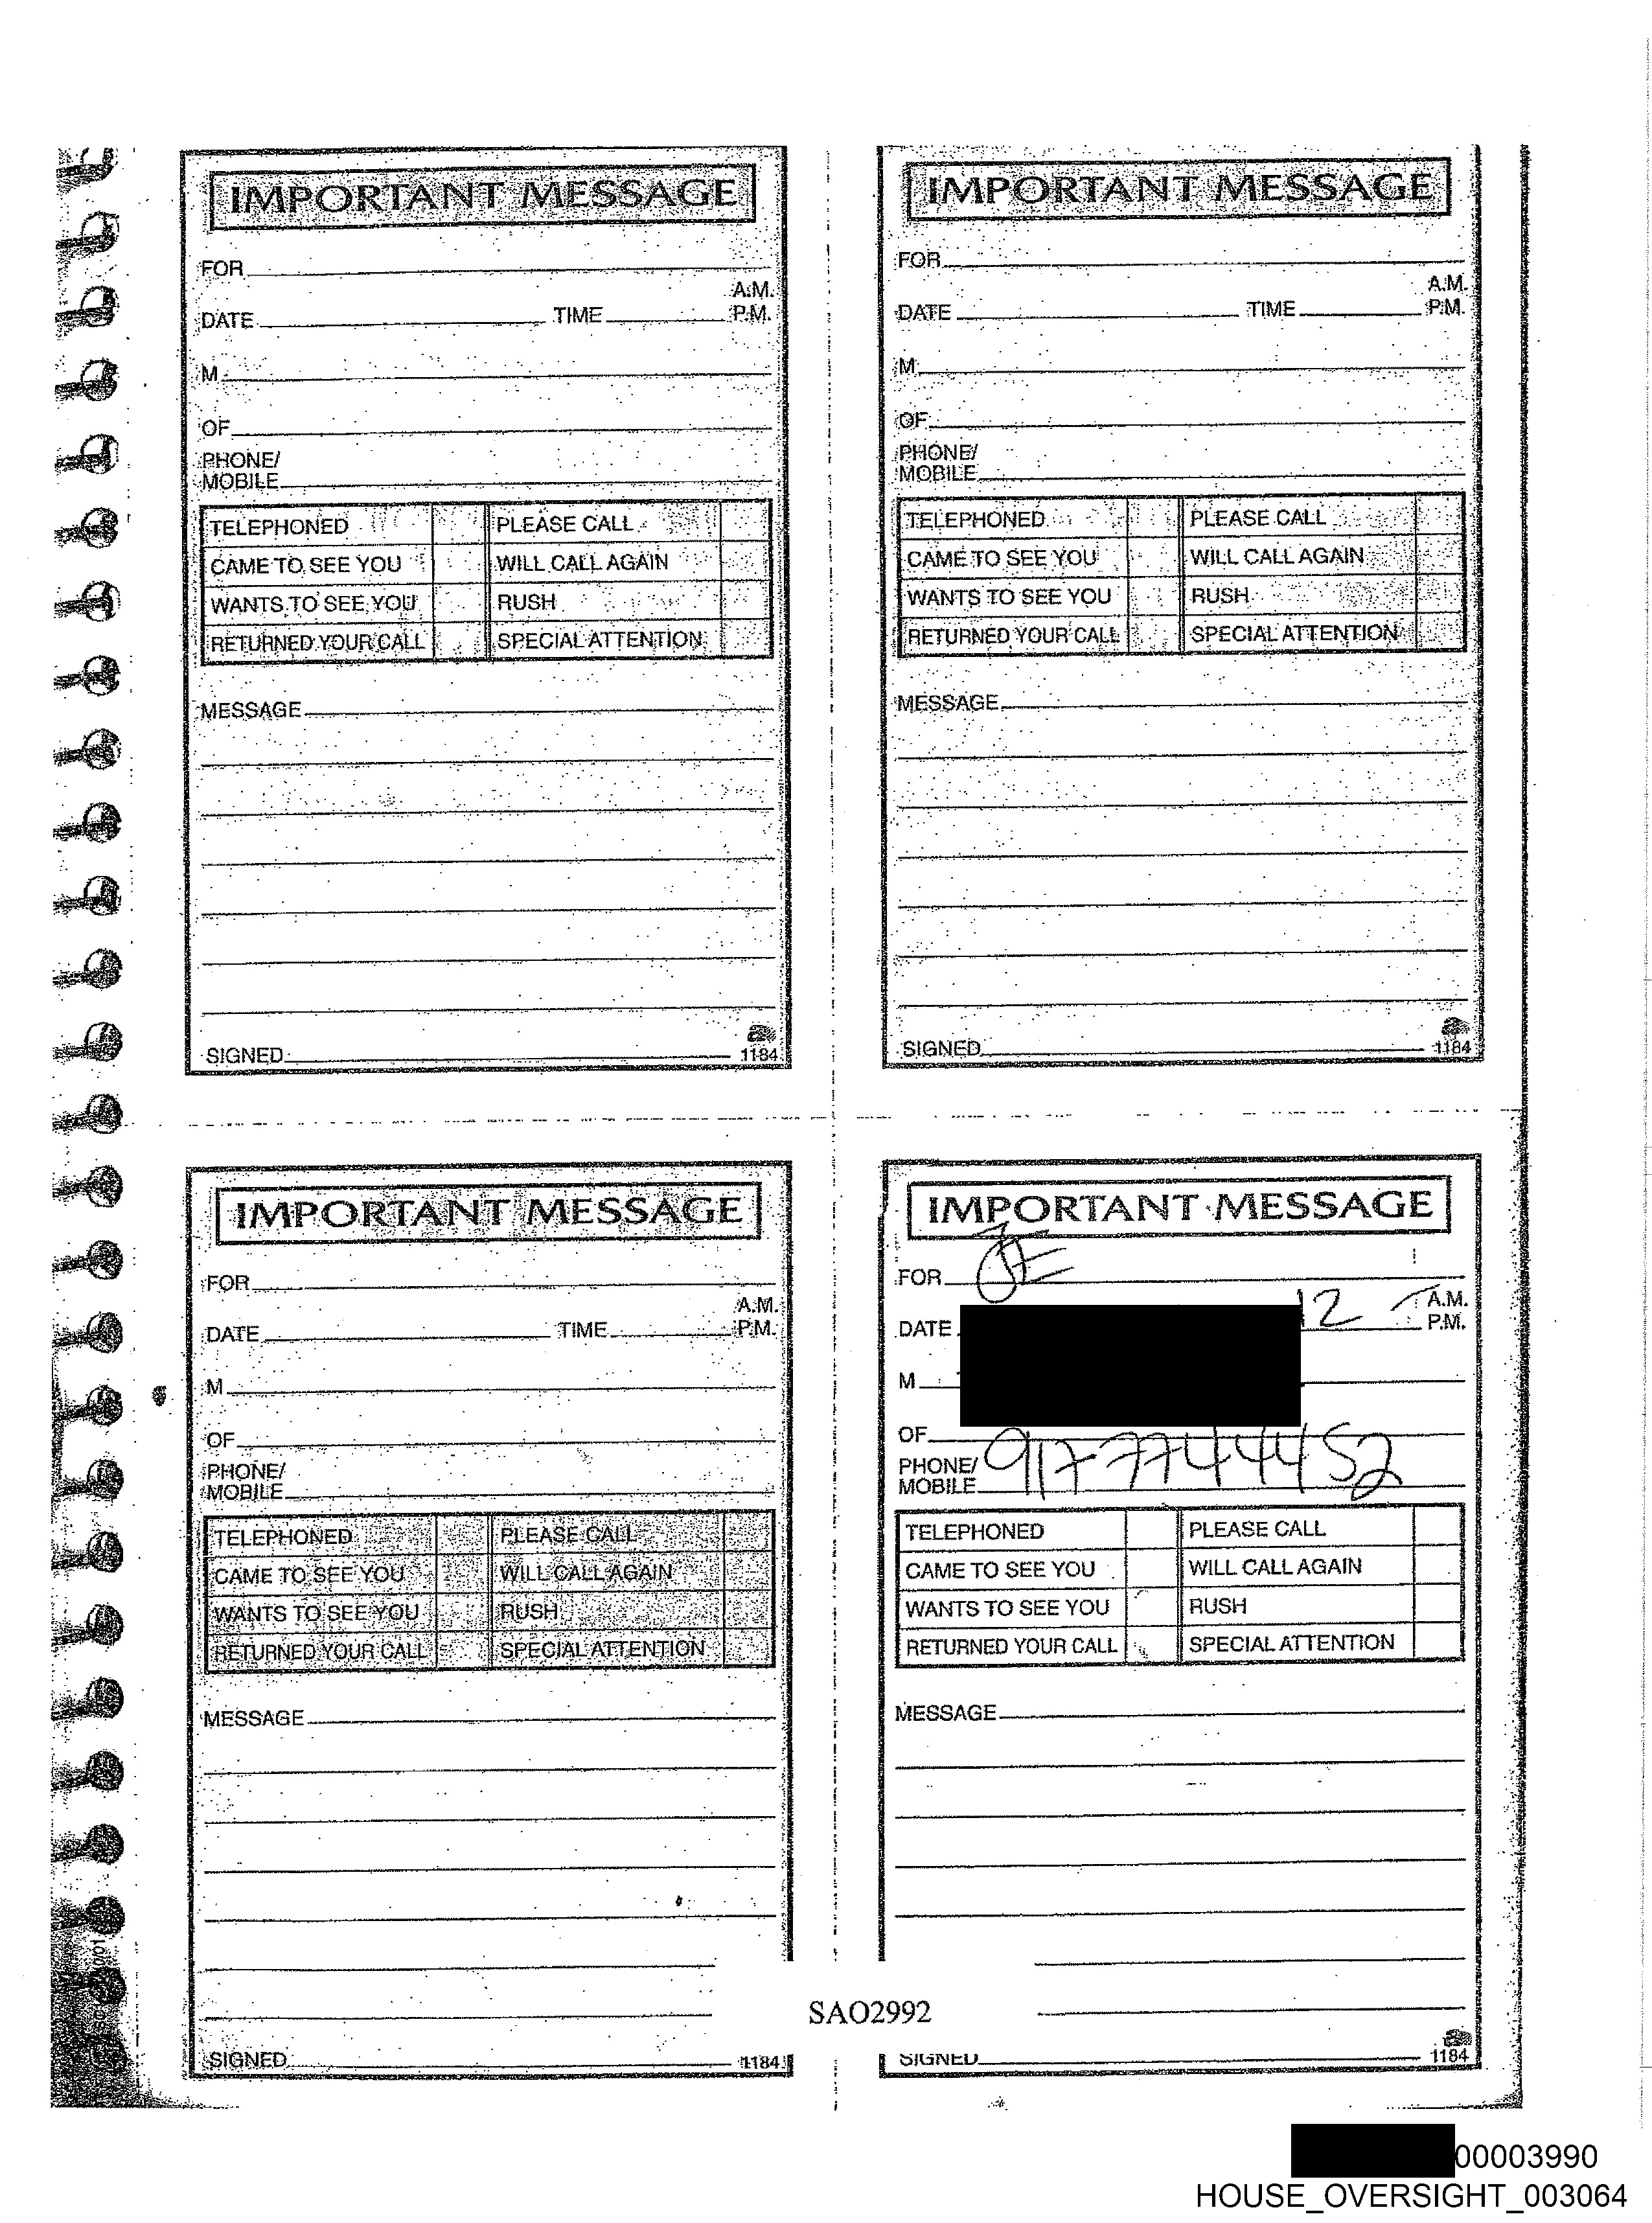 IMPORTANT MESSAGE
FOR
A.M.
DATE TIME P.M.
M
OF
PHONE/
MOBILE
TELEPHONED PLEASE CALL
CAME TO SEE YOU WILL CALL AGAIN
WANTS TO SEE YOU RUSH
RETURNED YOUR CALL SPECIAL ATTENTION
MESSAGE
SIGNED 1184
IMPORTANT MESSAGE
FOR
A.M.
DATE TIME P.M.
M
OF
PHONE/
MOBILE
TELEPHONED PLEASE CALL
CAME TO SEE YOU WILL CALL AGAIN
WANTS TO SEE YOU RUSH
RETURNED YOUR CALL SPECIAL ATTENTION
MESSAGE
SIGNED 1184
IMPORTANT MESSAGE
FOR
A.M.
DATE TIME P.M.
M
OF
PHONE/
MOBILE
TELEPHONED PLEASE CALL
CAME TO SEE YOU WILL CALL AGAIN
WANTS TO SEE YOU RUSH
RETURNED YOUR CALL SPECIAL ATTENTION
MESSAGE
SIGNED 1184
IMPORTANT MESSAGE
FOR JE
A.M.
DATE 12 P.M.
M
OF
PHONE/
MOBILE 917 7744452
TELEPHONED PLEASE CALL
CAME TO SEE YOU WILL CALL AGAIN
WANTS TO SEE YOU RUSH
RETURNED YOUR CALL SPECIAL ATTENTION
MESSAGE
SIGNED 1184
SAO2992
00003990
HOUSE_OVERSIGHT_003064